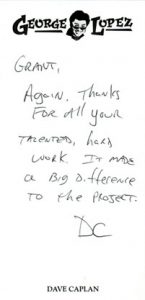 GEORGE LOPEZ
GRANT,
Again, Thanks
FOR All your
TALENTED, hard
WORK. IT MADE
a BIg DIfference
TO the PROJECT.
DC
DAVE CAPLAN